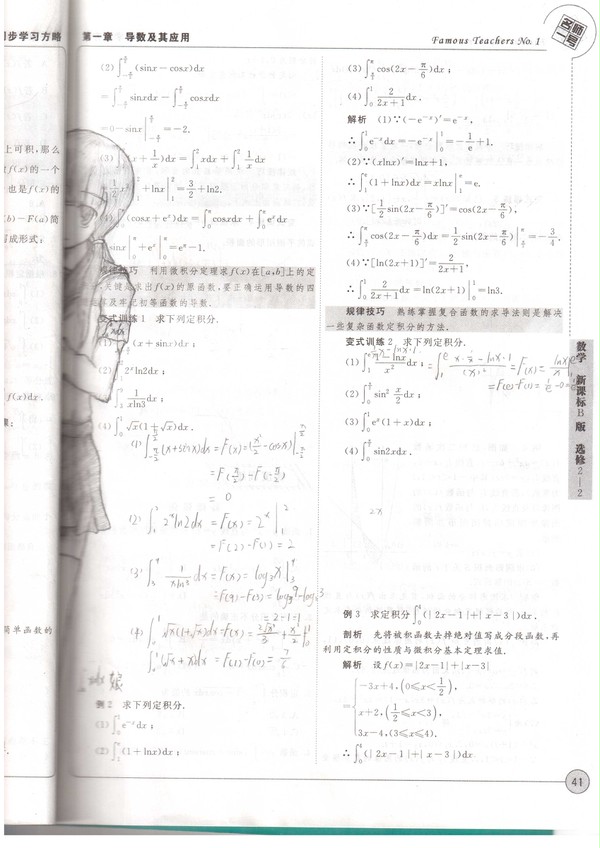 同步学习方略
第一章 导数及其应用
Famous Teachers No. 1
名师一号
上可积,那么
f(x)的一个
也是f(x)的
(b)-F(a)简
写成形式:
f(x)dx.
简单函数的
(sinx-cosx)dx
sinxdx- cosxdx
=0-sinx =-2.
(3)∫₁²(x+1/x)dx=∫₁²xdx+∫₁²1/x dx
=1/2x²|₁²+lnx|₁²=3/2+ln2.
(cosx+eˣ)dx= cosxdx+ eˣdx
利用微积分定理求f(x)在[a,b]上的定
关键是求出f(x)的原函数,要正确运用导数的四
及牢记初等函数的导数.
变式训练1 求下列定积分.
(x+sinx)dx;
2ˣln2dx;
1/(xln3)dx;
(4)∫₀¹√x(1+√x)dx.
(1) (x+sinx)dx=F(x)=(x²/2-cosx)
=F(π/2)-F(-π/2)
=0
(2)∫₁²2ˣln2dx=F(x)=2ˣ|₁²
=F(2)-F(1)=2
(3) 1/(xln3)dx=F(x)=log₃x
=F(9)-F(3)=log₃9-log₃3
=2-1=1
(4)∫₀¹√x(1+√x)dx=F(x)=
∫₀¹(√x+x)dx=F(1)-F(0)=7/6
例2 求下列定积分.
(1)∫₀¹e⁻ˣdx;
(1+lnx)dx;
(3) cos(2x-π/6)dx;
(4)∫₀¹2/(2x+1)dx.
解析 (1)∵(-e⁻ˣ)′=e⁻ˣ,
∴∫₀¹e⁻ˣdx=-e⁻ˣ|₀¹=-1/e+1.
(2)∵(xlnx)′=lnx+1,
∴ (1+lnx)dx=xlnx =e.
(3)∵[1/2sin(2x-π/6)]′=cos(2x-π/6),
∴ cos(2x-π/6)dx=1/2sin(2x-π/6) =-3/4.
(4)∵[ln(2x+1)]′=2/(2x+1).
∴∫₀¹2/(2x+1)dx=ln(2x+1)|₀¹=ln3.
规律技巧 熟练掌握复合函数的求导法则是解决
一些复杂函数定积分的方法.
变式训练2 求下列定积分.
(1)∫₁ᵉ(1-lnx)/x²dx;
=F(x)=lnx/x
=F(e)-F(1)=1/e-0
sin²x/2dx;
(3)∫₀¹eˣ(1+x)dx;
sin2xdx.
2x
例3 求定积分∫₀⁴(|2x-1|+|x-3|)dx.
剖析 先将被积函数去掉绝对值写成分段函数,再
利用定积分的性质与微积分基本定理求值.
解析 设f(x)=|2x-1|+|x-3|
-3x+4,(0≤x<1/2),
=x+2,(1/2≤x<3),
3x-4,(3≤x≤4).
∴∫₀⁴(|2x-1|+|x-3|)dx
数学 新课标B版 选修2-2
41